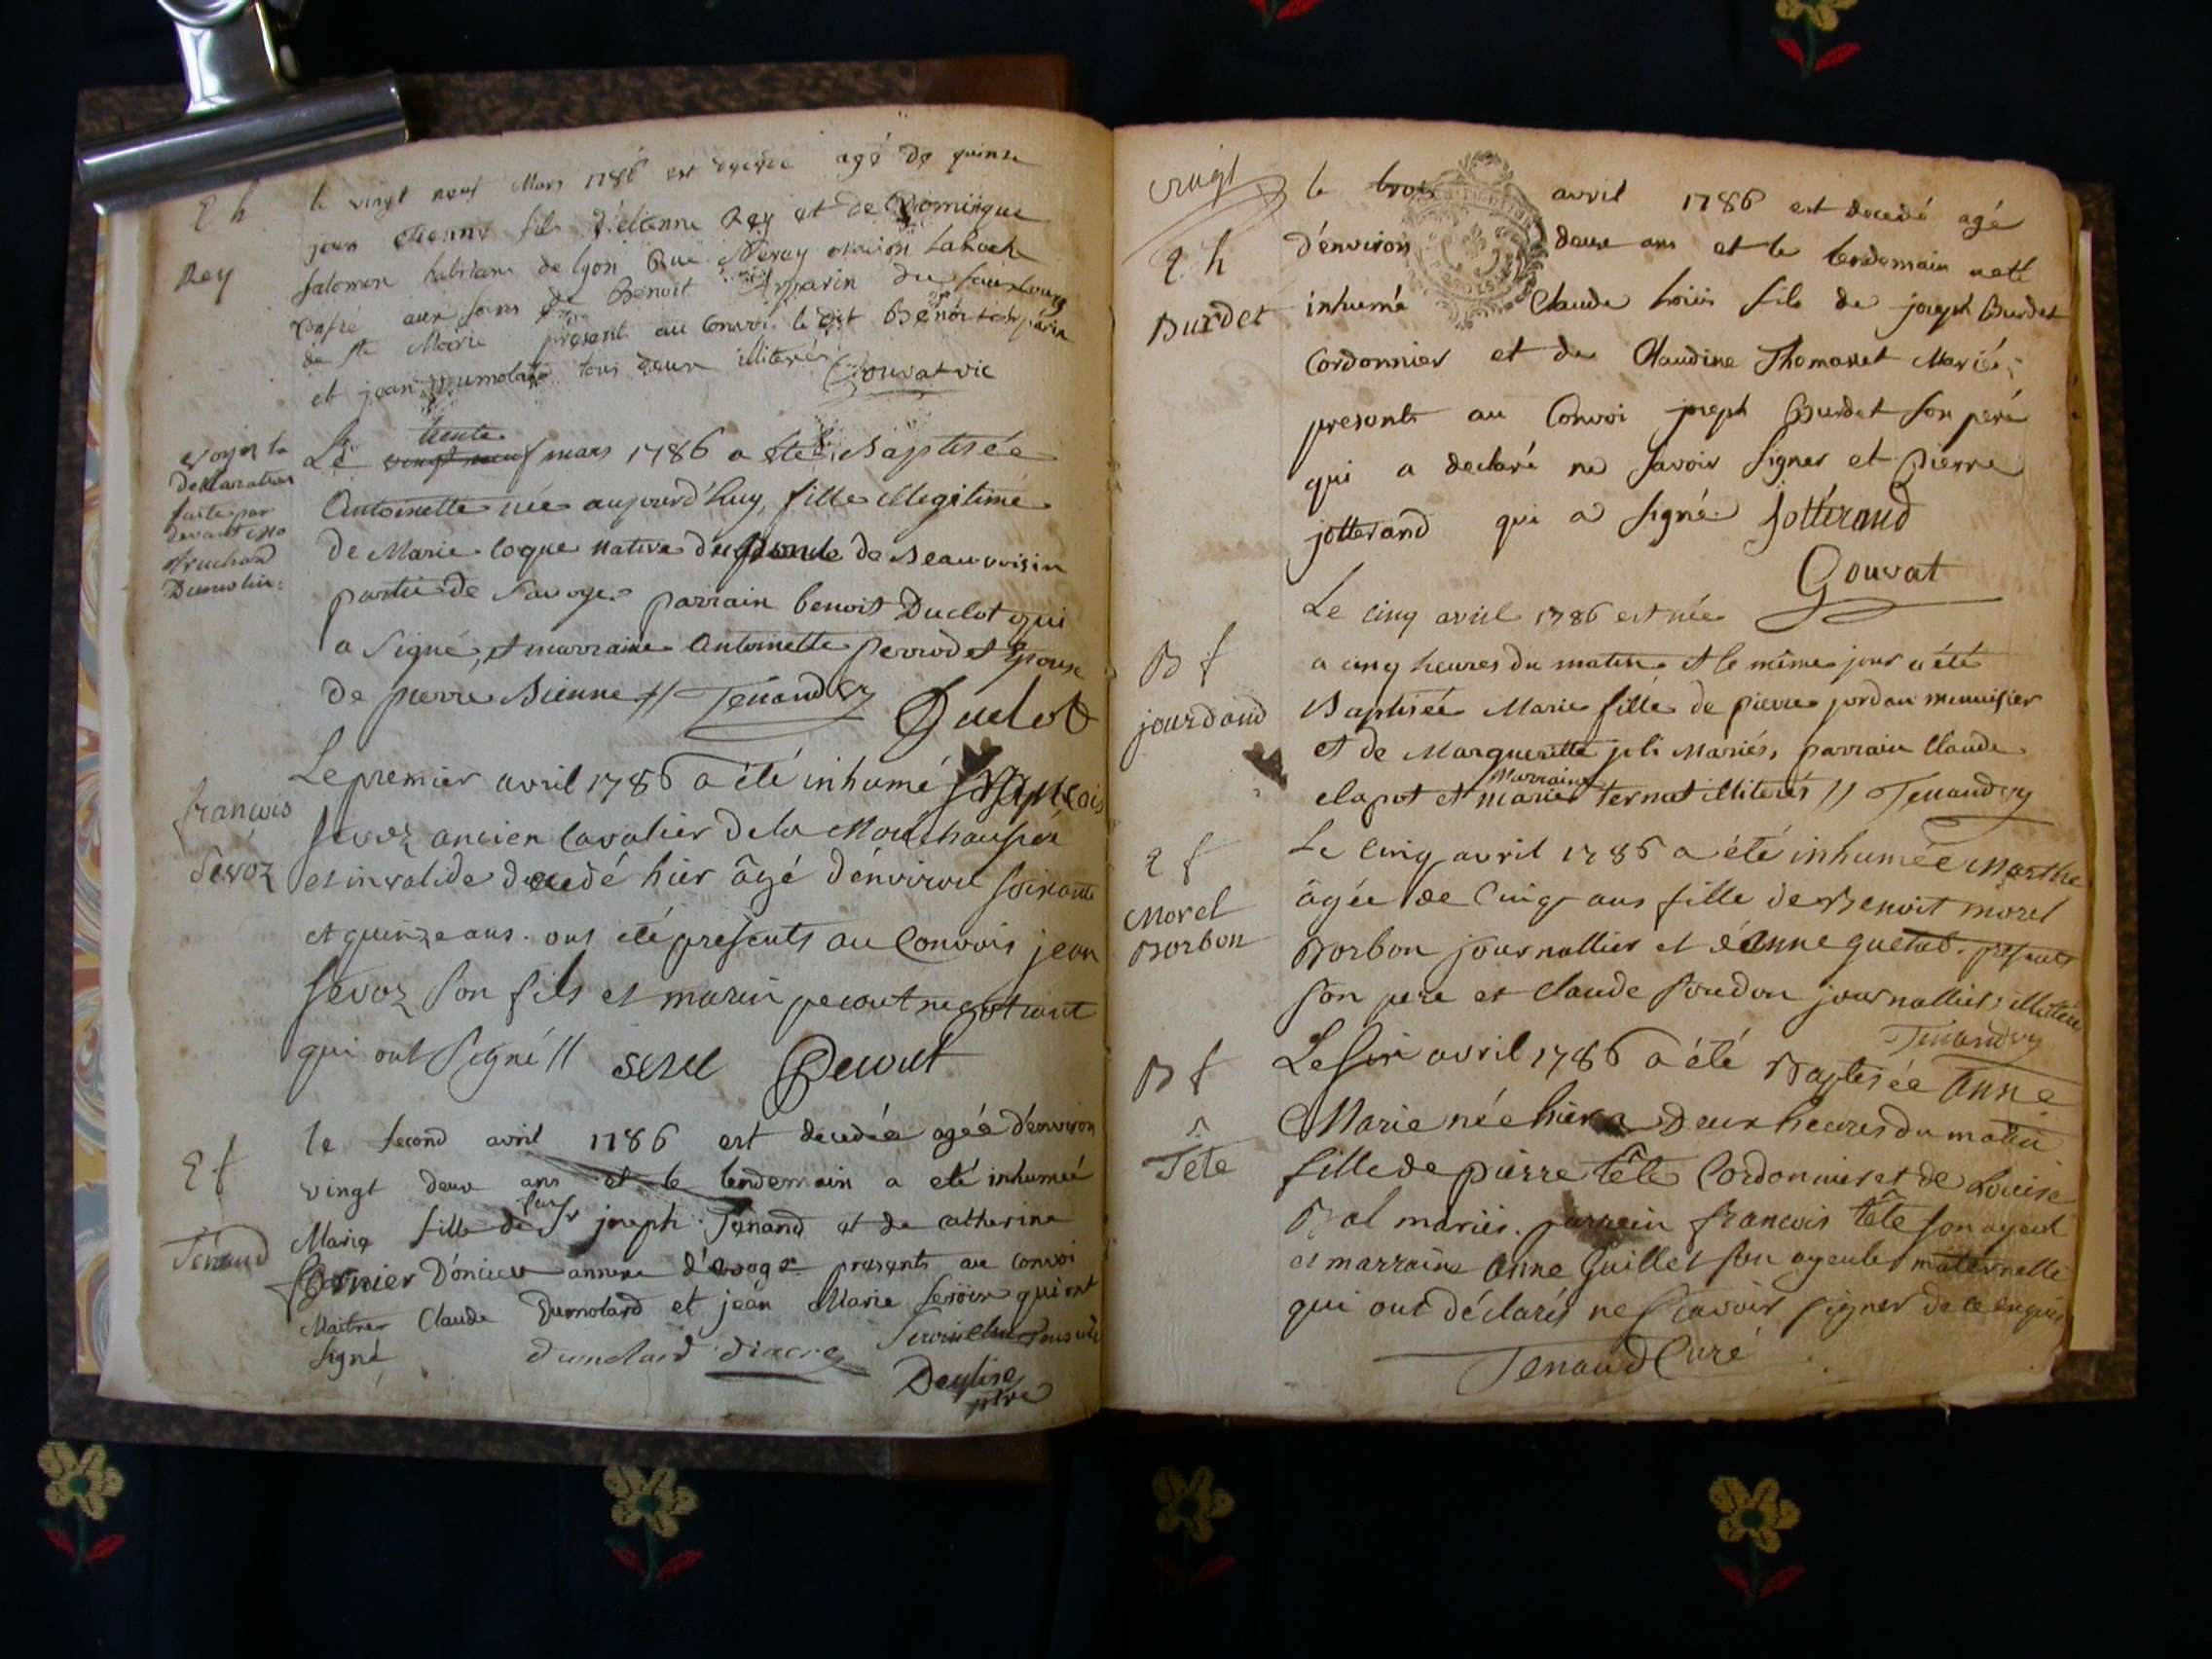 2 h
Rey
le vingt neuf Mars 1786 est décédé agé de quinze
jours etienne fils d'etienne Rey et de Dominique
Salomon habitans de lyon Rue Meray maison
aux soins de Benoit du fauxbourg
de Ste Marie présent au Convoi le dit Benoit
et jean Dumolard tous deux illiterés Gouvat vic
voyez la
declaration
faite par
devant Me
Truchard
Dumolin:
trente
Le vingt neuf mars 1786 a été Baptisée
Antoinette née aujourd'huy, fille illegitime
de Marie loque native du pont de Beauvoisin
partie de Savoye parrain benoit Duclot qui
a signé, et marraine Antoinette perrodet Epouse
de pierre Bienne // Tenand Cz Duclot
françois
Sevoz
Le premier avril 1786 a été inhumé françois
Sevoz ancien Cavalier de la Marechaussée
et invalide decedé hier âgé d'environ soixante
et quinze ans. ont été presents au Convois jean
Sevoz son fils et marin pecout negotiant
qui ont signé // Pecout
2 f
Tenand
le second avril 1786 est decedée agée d'environ
vingt deux ans et le lendemain a eté inhumée
feu
Marie fille de Sr joseph Tenand et de catherine
D'oncieu annexe d' presents au convoi
Maitres Claude Dumolard et jean Marie qui ont
signé dumolard diacre
ptre
vingt
2 h
Burdet
le trois avril 1786 est decedé agé
d'environ deux ans et le lendemain a eté
inhumé Claude loüis fils de joseph Burdet
Cordonnier et de Claudine Thomasset Mariés;
presents au Convoi joseph Burdet son peré
qui a declaré ne savoir signer et Pierre
jotterand qui a signé. Jottérand
Gouvat
B f
jourdand
Le cinq avril 1786 est née
a cinq heures du matin et le même jour a été
Baptisée Marie fille de pierre jordan menuisier
et de Margueritte joli Mariés, parrain Claude
marraine
clapot et marie ternat illiterés // Tenand Cz
2 f
Morel
Borbon
Le Cinq avril 1786 a été inhumée Marthe
âgée de Cinq ans fille de Benoit morel
Borbon journallier et d'Anne guetat. presents
son pere et Claude Soudon journallier illiterés
Tenand Cz
B f
Tête
Le Six avril 1786 a été Baptisée Anne
Marie née hier a Deux heures du matin
fille de pierre tête Cordonnier et de Louise
Bal mariés. parrain francois tête son ayeul
et marraine Anne Guillet son ayeule maternelle
qui ont déclarés ne Scavoir signer de ce enquis
Tenand Curé